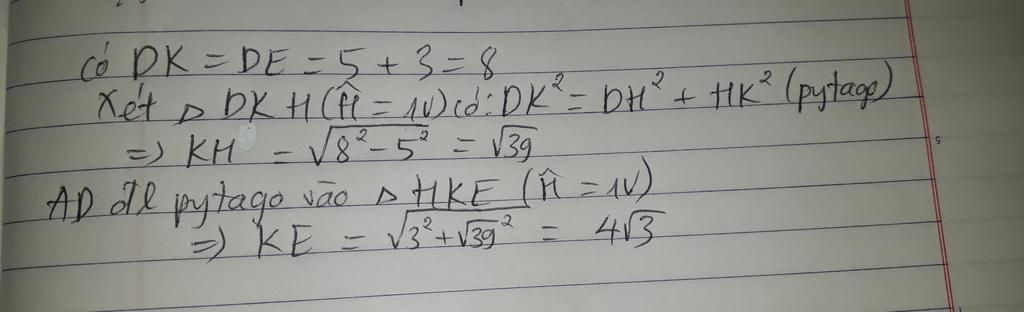 có DK = DE = 5 + 3 = 8
Xét △ DKH (Ĥ = 1V) có: DK² = DH² + HK² (pytago)
=> KH = √(8² - 5²) = √39
AD đl pytago vào △ HKE (Ĥ = 1V)
=> KE = √(3² + √39²) = 4√3